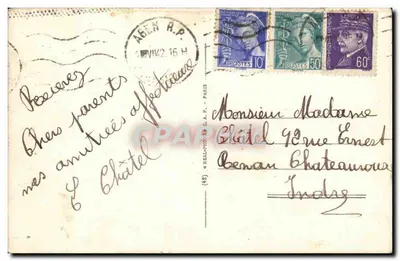 AGEN R.P.
16 H
POSTES 10
POSTES 50
60c
Recevez
Chers parents
mes amitiées affectueuse
E Châtel
Monsieur Madame
Châtel 92 rue Ernest
Renan Chateauroux
Indre
PARIS